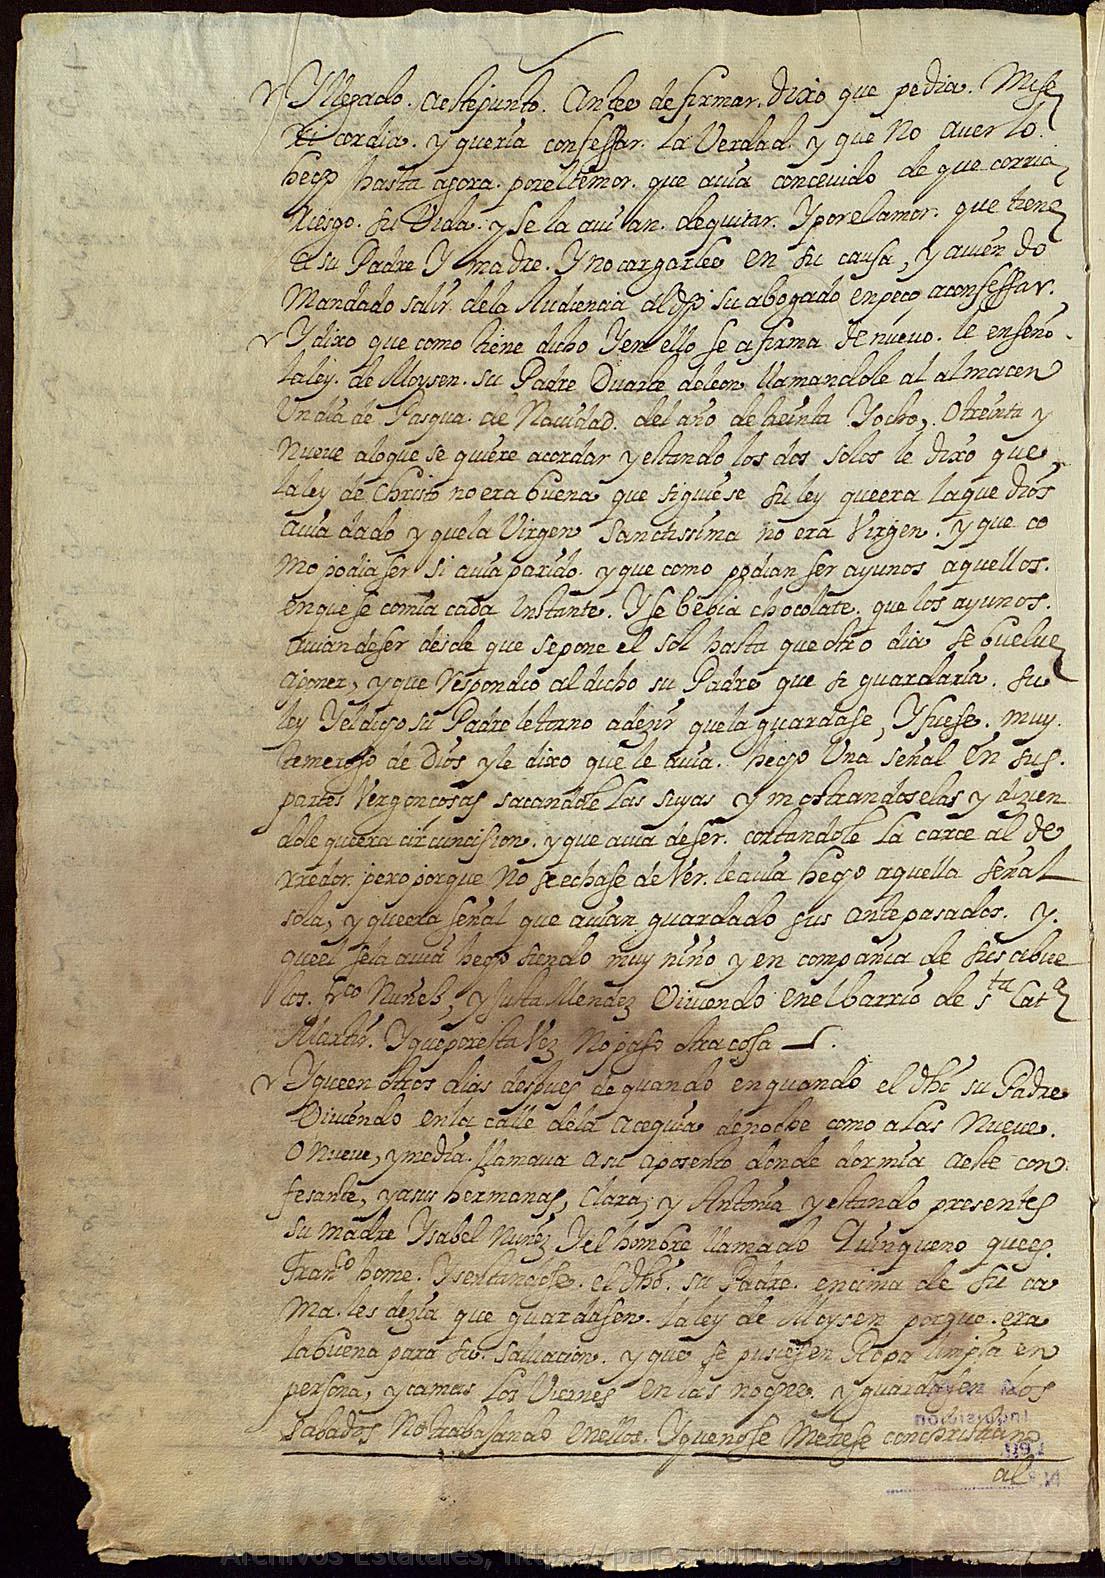 Y llegado. a este punto. Antes de firmar. dixo que pedia. Mise
ricordia. y queria confessar. la Verdad. y que no auerlo.
hecho hasta agora. por el temor. que auia conceuido de que corria
Riesgo. su Vida. y se la auian. de quitar. Y por el amor. que tiene
a su Padre Y madre. Y no cargarles en su causa, y auiendo
Mandado salir. dela Audiencia al dho su abogado enpeço a confessar.
Y dixo que como tiene dicho Y en ello se afirma de nueuo. le enseño.
la ley. de Moysen. su Padre Duarte de leon llamandole al almacen
Un dia de Pasqua. de Nauidad. del año de treinta Y ocho, O treinta y
nueue a lo que se quiere acordar y estando los dos solos le dixo que,
la ley de Christo no era buena que siguiese su ley que era la que Dios
auia dado y que la Virgen Sanctissima no era Virgen. y que co
mo podia ser si auia parido. y que como podian ser ayunos aquellos.
en que se comia cada instante. Y se bebia chocolate. que los ayunos.
auian de ser desde que se pone el sol hasta que otro dia se buelue
a poner, y que Respondio al dicho su Padre que si guardaria. su
ley Y el dicho su Padre le torno a dezir que la guardase, Y fuese. muy.
temeroso de Dios y le dixo que le auia. hecho Una señal en sus.
partes Vergonçosas sacandole las suyas y mostrandoselas y dizien
dole que era circuncision. y que auia de ser. cortandole la carne al de
rredor. pero porque no se echase de Ver. le auia hecho aquella señal
sola, y que era señal que auian guardado sus antepasados. y.
que el se la auia hecho siendo muy niño y en compañia de sus abue
los. Frco Nuñes, y Justa Mendez Viuiendo en el barrio de sta Cata
Martir. Y que por esta Vez no paso otra cosa
Y que en otros dias despues de quando en quando el dho su Padre
Viuiendo en la calle dela acequia de noche como a las nueue.
O nueue, y media. llamaua a su aposento donde dormia a este con
fesante, y a sus hermanas, Clara, y Antonia y estando presentes
su madre Ysabel Nuñez Y el hombre llamado Tunqueno que es.
Franco home. Y sentandose. el dho. su Padre. encima de su ca
ma. les dezia que guardasen. la ley de Moysen porque. era
la buena para su. saluacion. y que se pusiesen Ropa limpia en
persona, y camas los Viernes en las noches. y guardasen los
sabados no trabajando en ellos. Y que no se metiese con christiano
al
Archivos Estatales, https://pares.cultura.gob.es